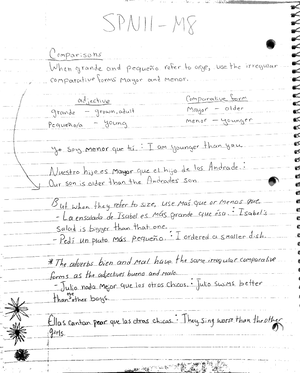 SPN11-M8
Comparisons
When grande and pequeño refer to age, use the irregular
comparative forms Mayor and menor.
adjective Comparative form
grande - grown, adult Mayor - older
Pequeño/a - young menor - younger
Yo Soy menor que tú. : I am younger than you
Nuestro hijo es Mayor que el hijo de los Andrade. :
Our son is older than the Andrades son.
But when they refer to size, use más que or menos que
- La ensalada de Isabel es más grande que ésa. : Isabel's
Salad is bigger than that one.
- Pedí un plato más pequeño. : I ordered a smaller dish.
* The adverbs bien and mal have the same irregular comparative
forms as the adjectives bueno and malo.
- Julio nada mejor que los otros chicos. : Julio swims better
than the other boys.
Ellas cantan peor que las otras chicas. : They sing worst than the other
girls.